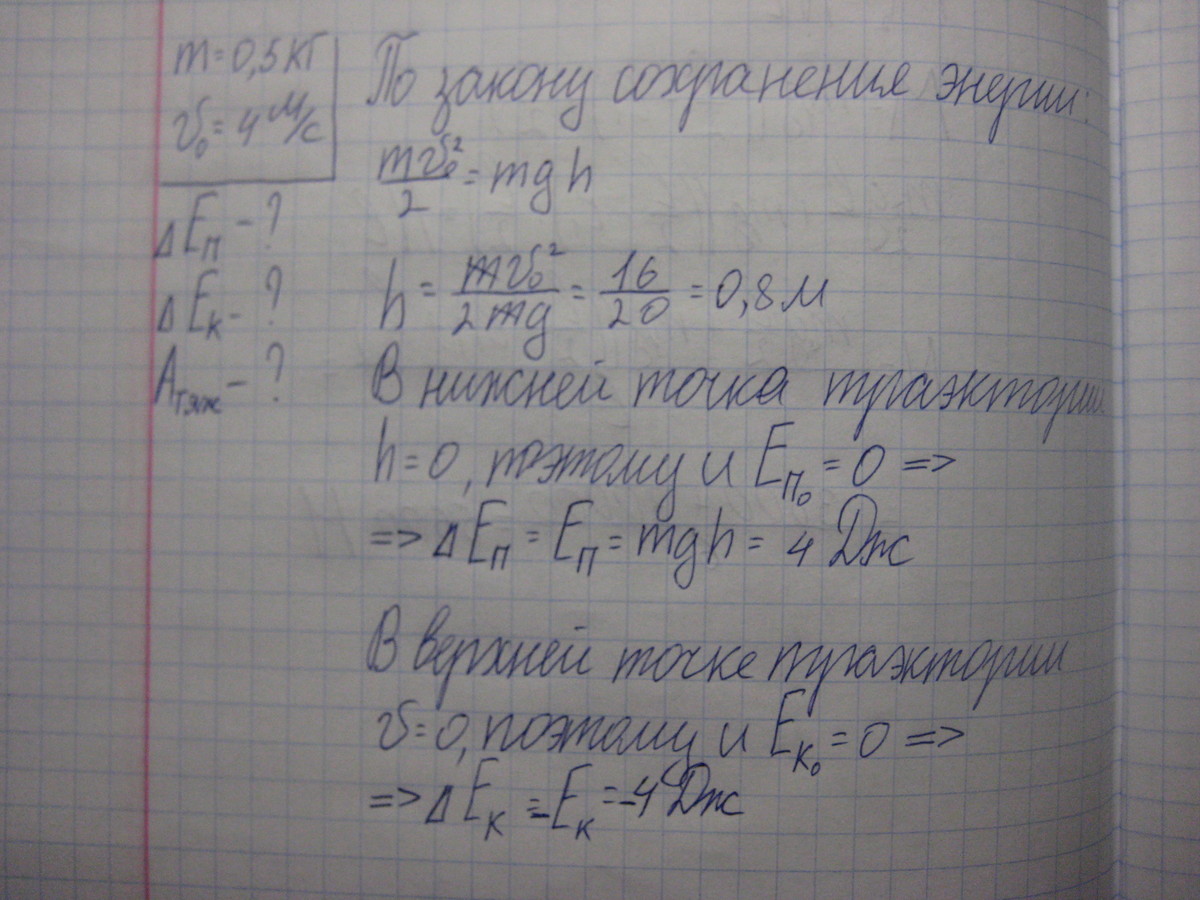 m=0,5 кг
v₀=4 м/с
ΔEп - ?
ΔEк - ?
Aтяж - ?
По закону сохранения энергии:
mv₀²/2 = mgh
h = mv₀²/2mg = 16/20 = 0,8 м
В нижней точка траэктории
h=0, поэтому и Eп₀ = 0 =>
=> ΔEп = Eп = mgh = 4 Дж
В верхней точке траэктории
v=0, поэтому и Eк₀ = 0 =>
=> ΔEк = -Eк = -4 Дж